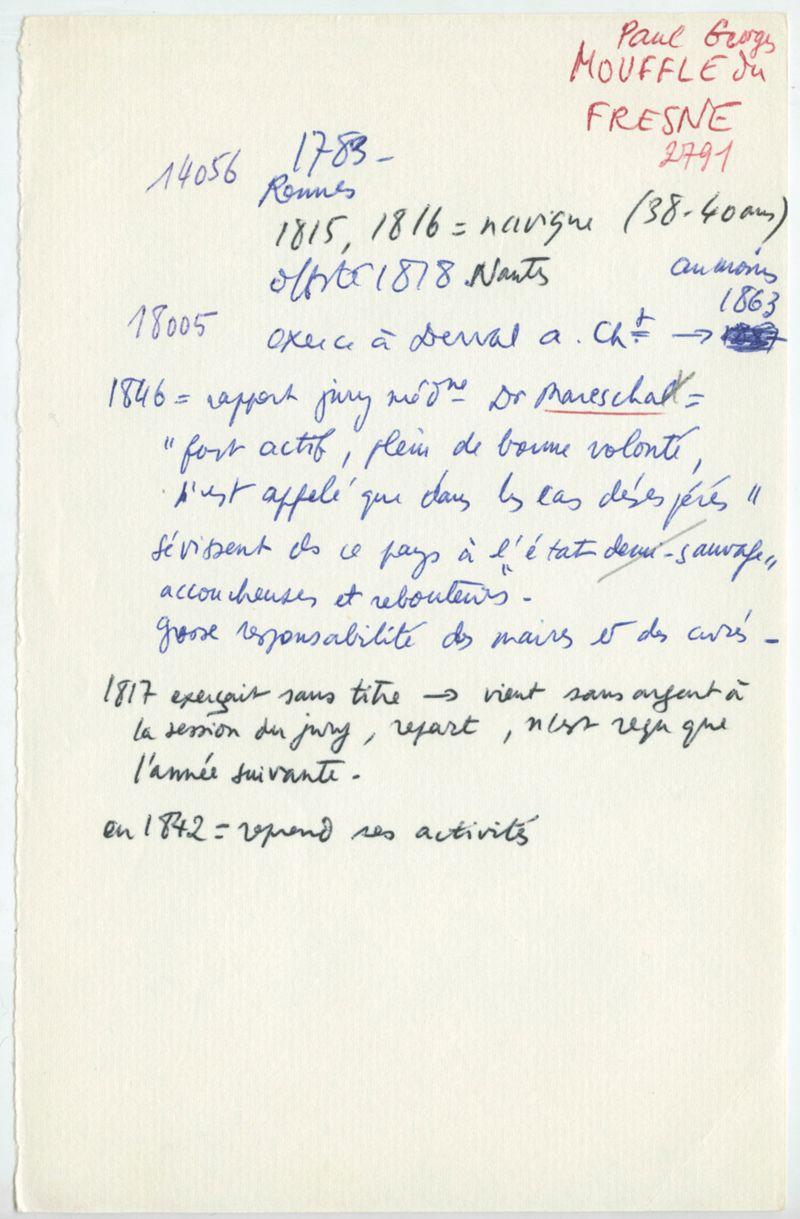 Paul Georges
MOUFFLE du
FRESNE
2791
14056 1783 -
Rennes
1815, 1816 = navigue (38-40 ans)
offsté 1818. Nantes au moins
1863
18005 exerce à Derval a. Cht →
1846 = rapport jury médne Dr Mareschal =
"fort actif, plein de bonne volonté,
n'est appelé que dans les cas désespérés"
sévissent ds ce pays "à l'état demi-sauvage"
accoucheuses et rebouteurs -
grosse responsabilité des maires et des curés -
1817 exerçait sans titre → vient sans argent à
la session du jury, repart, n'est reçu que
l'année suivante -
en 1842 = reprend ses activités